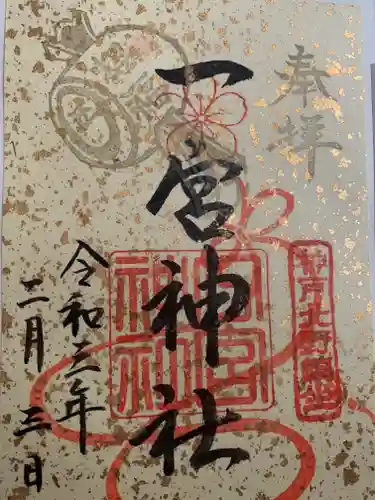 奉拝
一宮神社
令和三年
二月三日